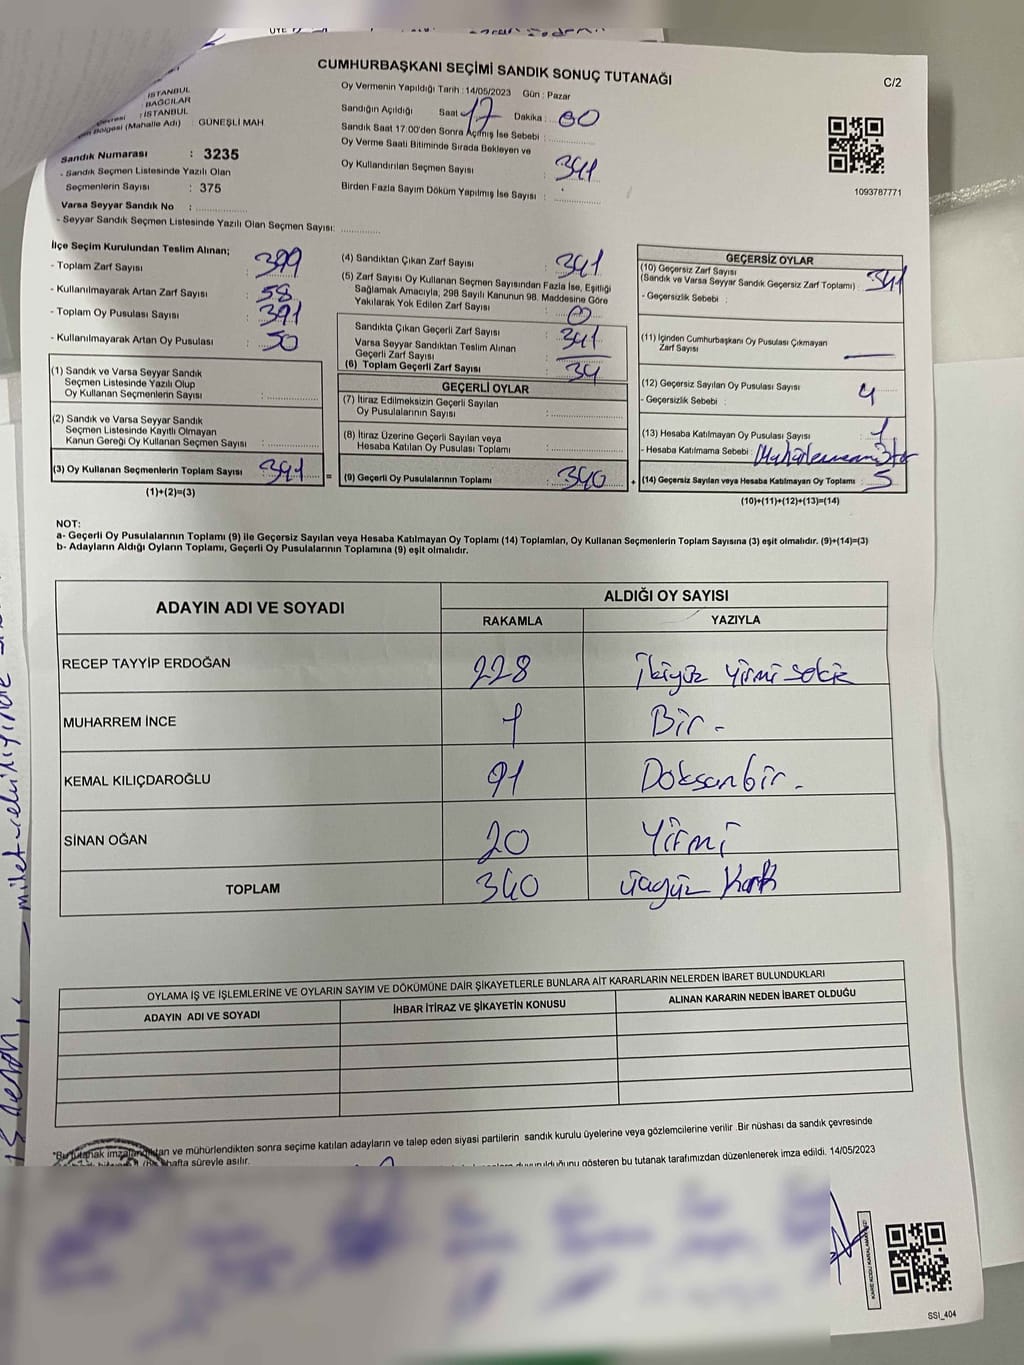 CUMHURBAŞKANI SEÇİMİ SANDIK SONUÇ TUTANAĞI
C/2
İSTANBUL
: BAĞCILAR
: İSTANBUL
Bölgesi (Mahalle Adı) : GÜNEŞLİ MAH
Sandık Numarası : 3235
- Sandık Seçmen Listesinde Yazılı Olan
Seçmenlerin Sayısı : 375
Varsa Seyyar Sandık No :
- Seyyar Sandık Seçmen Listesinde Yazılı Olan Seçmen Sayısı:
Oy Vermenin Yapıldığı Tarih : 14/05/2023 Gün : Pazar
Sandığın Açıldığı Saat : 17 Dakika : 00
Sandık Saat 17:00'den Sonra Açılmış İse Sebebi :
Oy Verme Saati Bitiminde Sırada Bekleyen ve
Oy Kullandırılan Seçmen Sayısı : 341
Birden Fazla Sayım Döküm Yapılmış İse Sayısı :
1093787771
İlçe Seçim Kurulundan Teslim Alınan;
- Toplam Zarf Sayısı : 399
- Kullanılmayarak Artan Zarf Sayısı : 58
- Toplam Oy Pusulası Sayısı : 391
- Kullanılmayarak Artan Oy Pusulası : 50
(1) Sandık ve Varsa Seyyar Sandık
Seçmen Listesinde Yazılı Olup
Oy Kullanan Seçmenlerin Sayısı :
(2) Sandık ve Varsa Seyyar Sandık
Seçmen Listesinde Kayıtlı Olmayan
Kanun Gereği Oy Kullanan Seçmen Sayısı :
(3) Oy Kullanan Seçmenlerin Toplam Sayısı : 341
(1)+(2)=(3)
(4) Sandıktan Çıkan Zarf Sayısı : 341
(5) Zarf Sayısı Oy Kullanan Seçmen Sayısından Fazla İse, Eşitliği
Sağlamak Amacıyla, 298 Sayılı Kanunun 98. Maddesine Göre
Yakılarak Yok Edilen Zarf Sayısı : 0
Sandıkta Çıkan Geçerli Zarf Sayısı : 341
Varsa Seyyar Sandıktan Teslim Alınan
Geçerli Zarf Sayısı :
(6) Toplam Geçerli Zarf Sayısı : 34
GEÇERLİ OYLAR
(7) İtiraz Edilmeksizin Geçerli Sayılan
Oy Pusulalarının Sayısı :
(8) İtiraz Üzerine Geçerli Sayılan veya
Hesaba Katılan Oy Pusulası Toplamı :
= (9) Geçerli Oy Pusulalarının Toplamı : 340
GEÇERSİZ OYLAR
(10) Geçersiz Zarf Sayısı
(Sandık ve Varsa Seyyar Sandık Geçersiz Zarf Toplamı) : 341
- Geçersizlik Sebebi :
(11) İçinden Cumhurbaşkanı Oy Pusulası Çıkmayan
Zarf Sayısı
(12) Geçersiz Sayılan Oy Pusulası Sayısı : 4
- Geçersizlik Sebebi :
(13) Hesaba Katılmayan Oy Pusulası Sayısı : 1
- Hesaba Katılmama Sebebi :
+ (14) Geçersiz Sayılan veya Hesaba Katılmayan Oy Toplamı : 5
(10)+(11)+(12)+(13)=(14)
NOT:
a- Geçerli Oy Pusulalarının Toplamı (9) ile Geçersiz Sayılan veya Hesaba Katılmayan Oy Toplamı (14) Toplamları, Oy Kullanan Seçmenlerin Toplam Sayısına (3) eşit olmalıdır. (9)+(14)=(3)
b- Adayların Aldığı Oyların Toplamı, Geçerli Oy Pusulalarının Toplamına (9) eşit olmalıdır.
ADAYIN ADI VE SOYADI
ALDIĞI OY SAYISI
RAKAMLA YAZIYLA
RECEP TAYYİP ERDOĞAN 228 İkiyüz yirmi sekiz
MUHARREM İNCE 1 Bir -
KEMAL KILIÇDAROĞLU 91 Doksanbir -
SİNAN OĞAN 20 Yirmi
TOPLAM 340 üçyüz kırk
OYLAMA İŞ VE İŞLEMLERİNE VE OYLARIN SAYIM VE DÖKÜMÜNE DAİR ŞİKAYETLERLE BUNLARA AİT KARARLARIN NELERDEN İBARET BULUNDUKLARI
ADAYIN ADI VE SOYADI
İHBAR İTİRAZ VE ŞİKAYETİN KONUSU
ALINAN KARARIN NEDEN İBARET OLDUĞU
"Bu tutanak imzalandıktan ve mühürlendikten sonra seçime katılan adayların ve talep eden siyasi partilerin sandık kurulu üyelerine veya gözlemcilerine verilir. Bir nüshası da sandık çevresinde
hafta süreyle asılır.
gösteren bu tutanak tarafımızdan düzenlenerek imza edildi. 14/05/2023
SSI_404